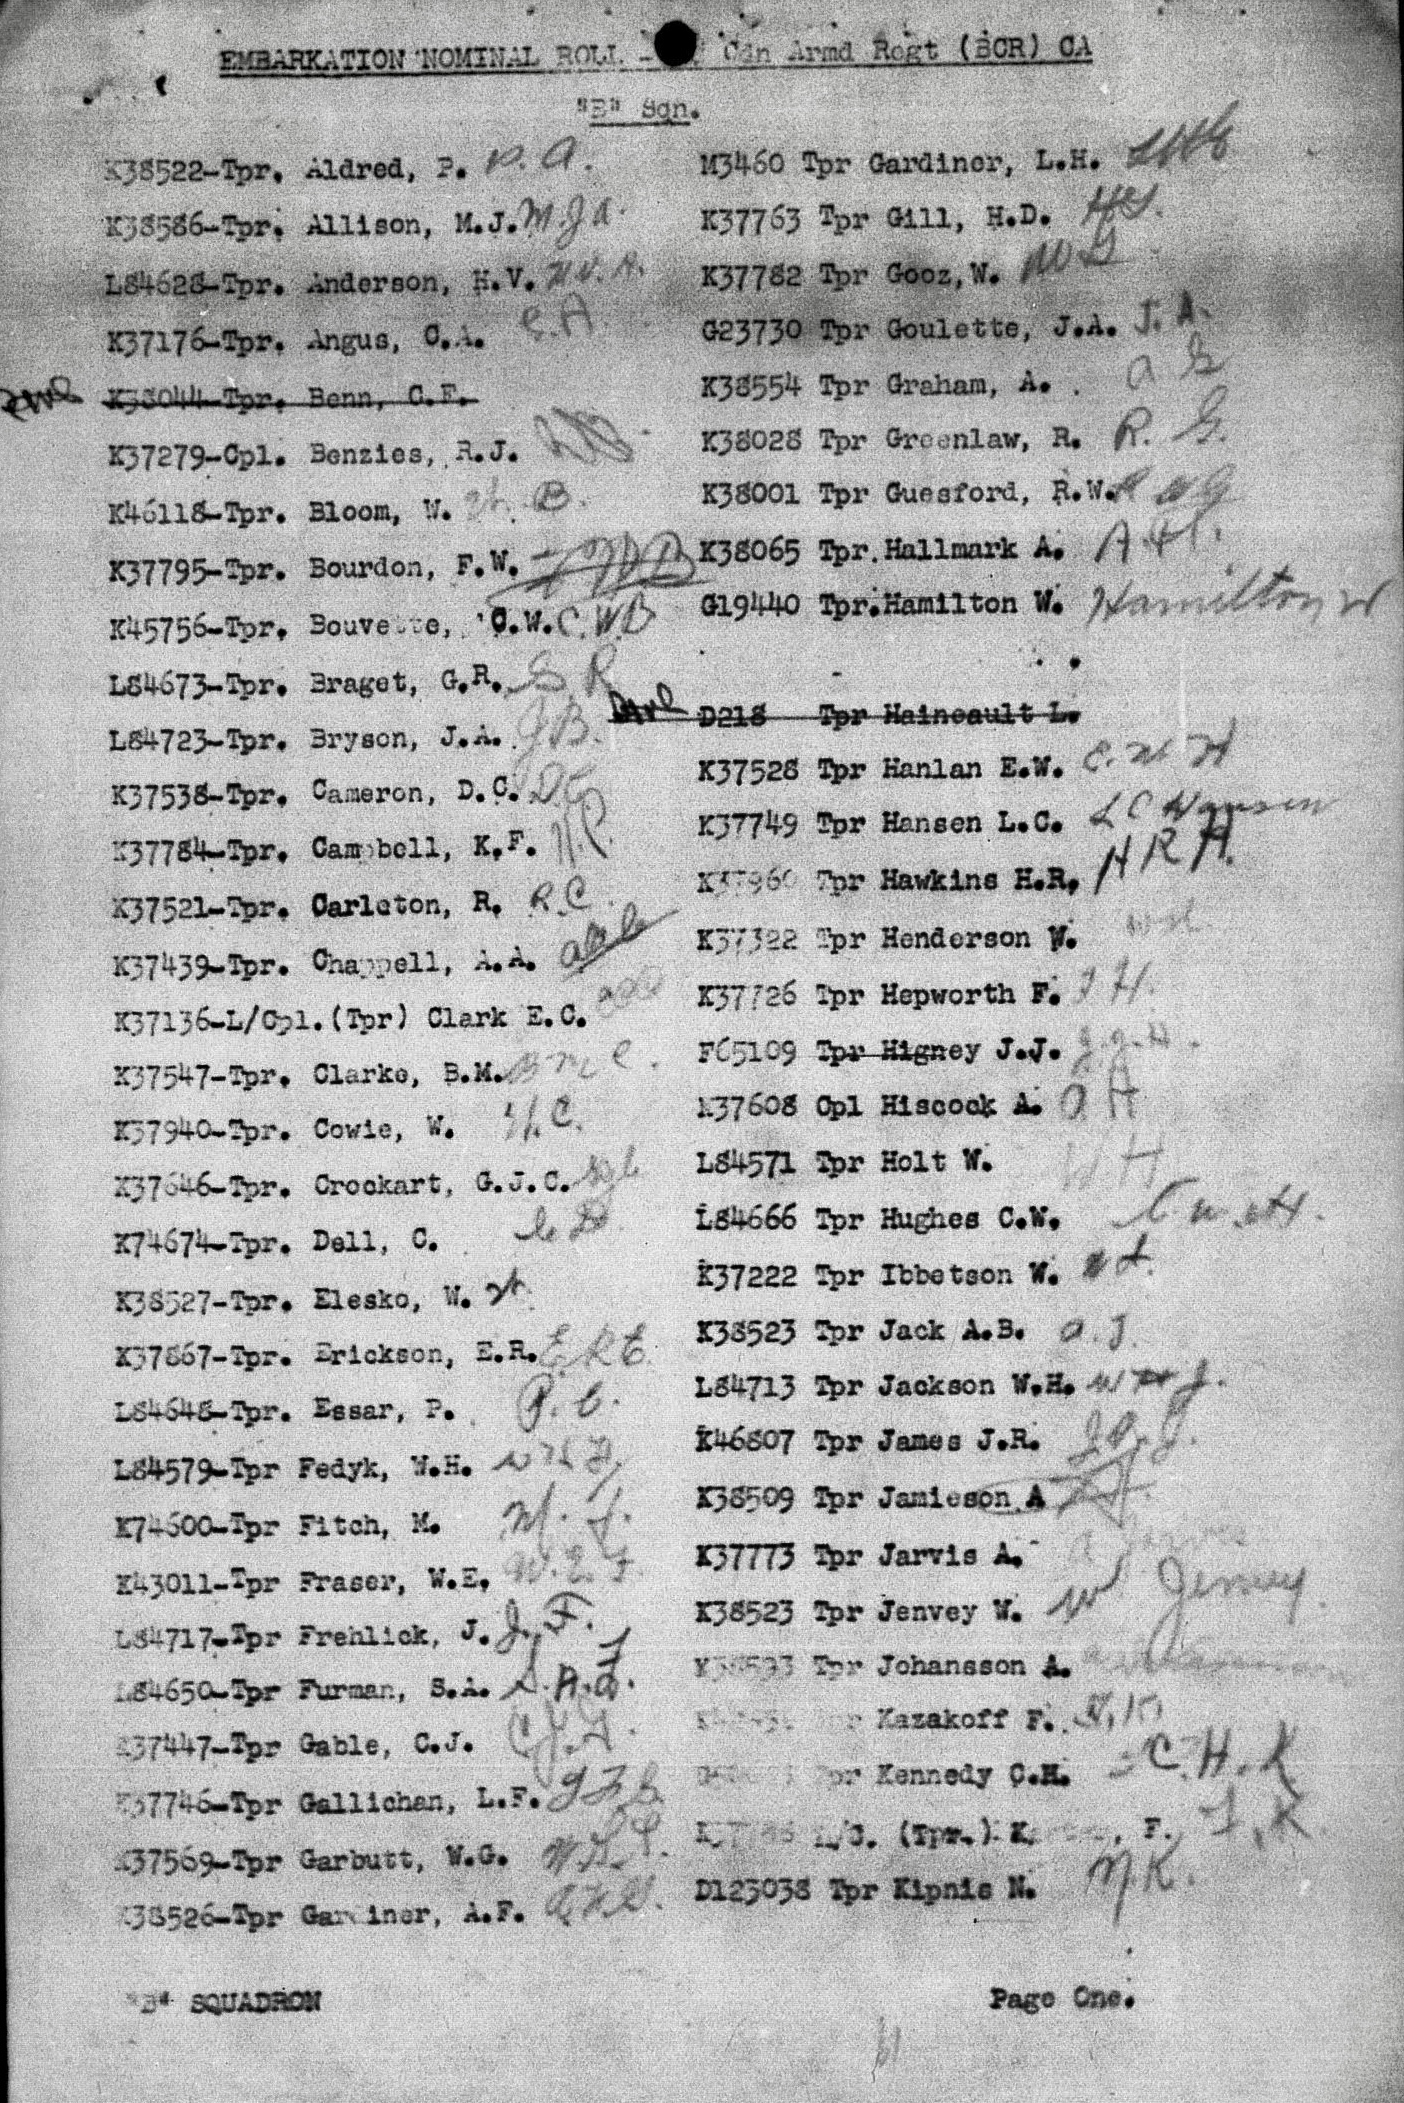 EMBARKATION NOMINAL ROLL - Cdn Armd Regt (BCR) CA
"B" Sqn.
K38522-Tpr. Aldred, P. P.A.
K38586-Tpr. Allison, M.J. M.J.A.
L84628-Tpr. Anderson, H.V. H.V.A.
K37176-Tpr. Angus, C.A. C.A
K38044-Tpr. Benn, C.F.
K37279-Cpl. Benzies, R.J.
K46118-Tpr. Bloom, W. W. B.
K37795-Tpr. Bourdon, F.W. FWB
K45756-Tpr. Bouvette, C.W. C.W.B
L84673-Tpr. Braget, G.R. G.R.
L84723-Tpr. Bryson, J.A. J.B.
K37538-Tpr. Cameron, D.C. D.C.
K37784-Tpr. Campbell, K.F.
K37521-Tpr. Carleton, R. R.C.
K37439-Tpr. Chappell, A.A. AAC
K37136-L/Cpl.(Tpr) Clark E.C.
K37547-Tpr. Clarke, B.M. B M C.
K37940-Tpr. Cowie, W. W.C.
K37646-Tpr. Crockart, G.J.C.
K74674-Tpr. Dell, C. C D
K38527-Tpr. Elesko, W.
K37867-Tpr. Erickson, E.R. E.R.E.
L84648-Tpr. Essar, P. P.E.
L84579-Tpr Fedyk, W.H. W H F
K74600-Tpr Fitch, M. M. F.
K43011-Tpr Fraser, W.E. W.E.F.
L84717-Tpr Frehlick, J. J. F.
L84650-Tpr Furman, S.A. S.A.F.
K37447-Tpr Gable, C.J. C.J.G.
K37746-Tpr Gallichan, L.F.
K37569-Tpr Garbutt, W.G.
K38526-Tpr Gardiner, A.F. A.F.G.
M3460 Tpr Gardiner, L.H. LHG
K37763 Tpr Gill, H.D. HG.
K37782 Tpr Gooz, W. W G
G23730 Tpr Goulette, J.A. J.A.
K38554 Tpr Graham, A. A G
K38028 Tpr Greenlaw, R. R. G.
K38001 Tpr Guesford, R.W. R W G
K38065 Tpr. Hallmark A. A.H.
G19440 Tpr. Hamilton W. Hamilton W
D218 Tpr Haineault L.
K37528 Tpr Hanlan E.W. E.W H
K37749 Tpr Hansen L.C. L C Hansen
K37960 Tpr Hawkins H.R. H R H.
K37322 Tpr Henderson W. W H.
K37726 Tpr Hepworth F. F H.
F65109 Tpr Higney J.J. J.J.H.
K37608 Cpl Hiscock A. A H
L84571 Tpr Holt W. W H
L84666 Tpr Hughes C.W.
K37222 Tpr Ibbetson W. W I.
K38523 Tpr Jack A.B. A.J
L84713 Tpr Jackson W.H. W H J.
K46807 Tpr James J.R. J.R.J.
K38509 Tpr Jamieson A AJ
K37773 Tpr Jarvis A. A Jarvis
K38523 Tpr Jenvey W. W Jenvey.
Tpr Johansson A.
Kazakoff F. F.K.
Tpr Kennedy C.H. C.H.K
(Tpr.) F. F.K.
D123038 Tpr Kipnis N. N.K.
"B" SQUADRON
Page One.